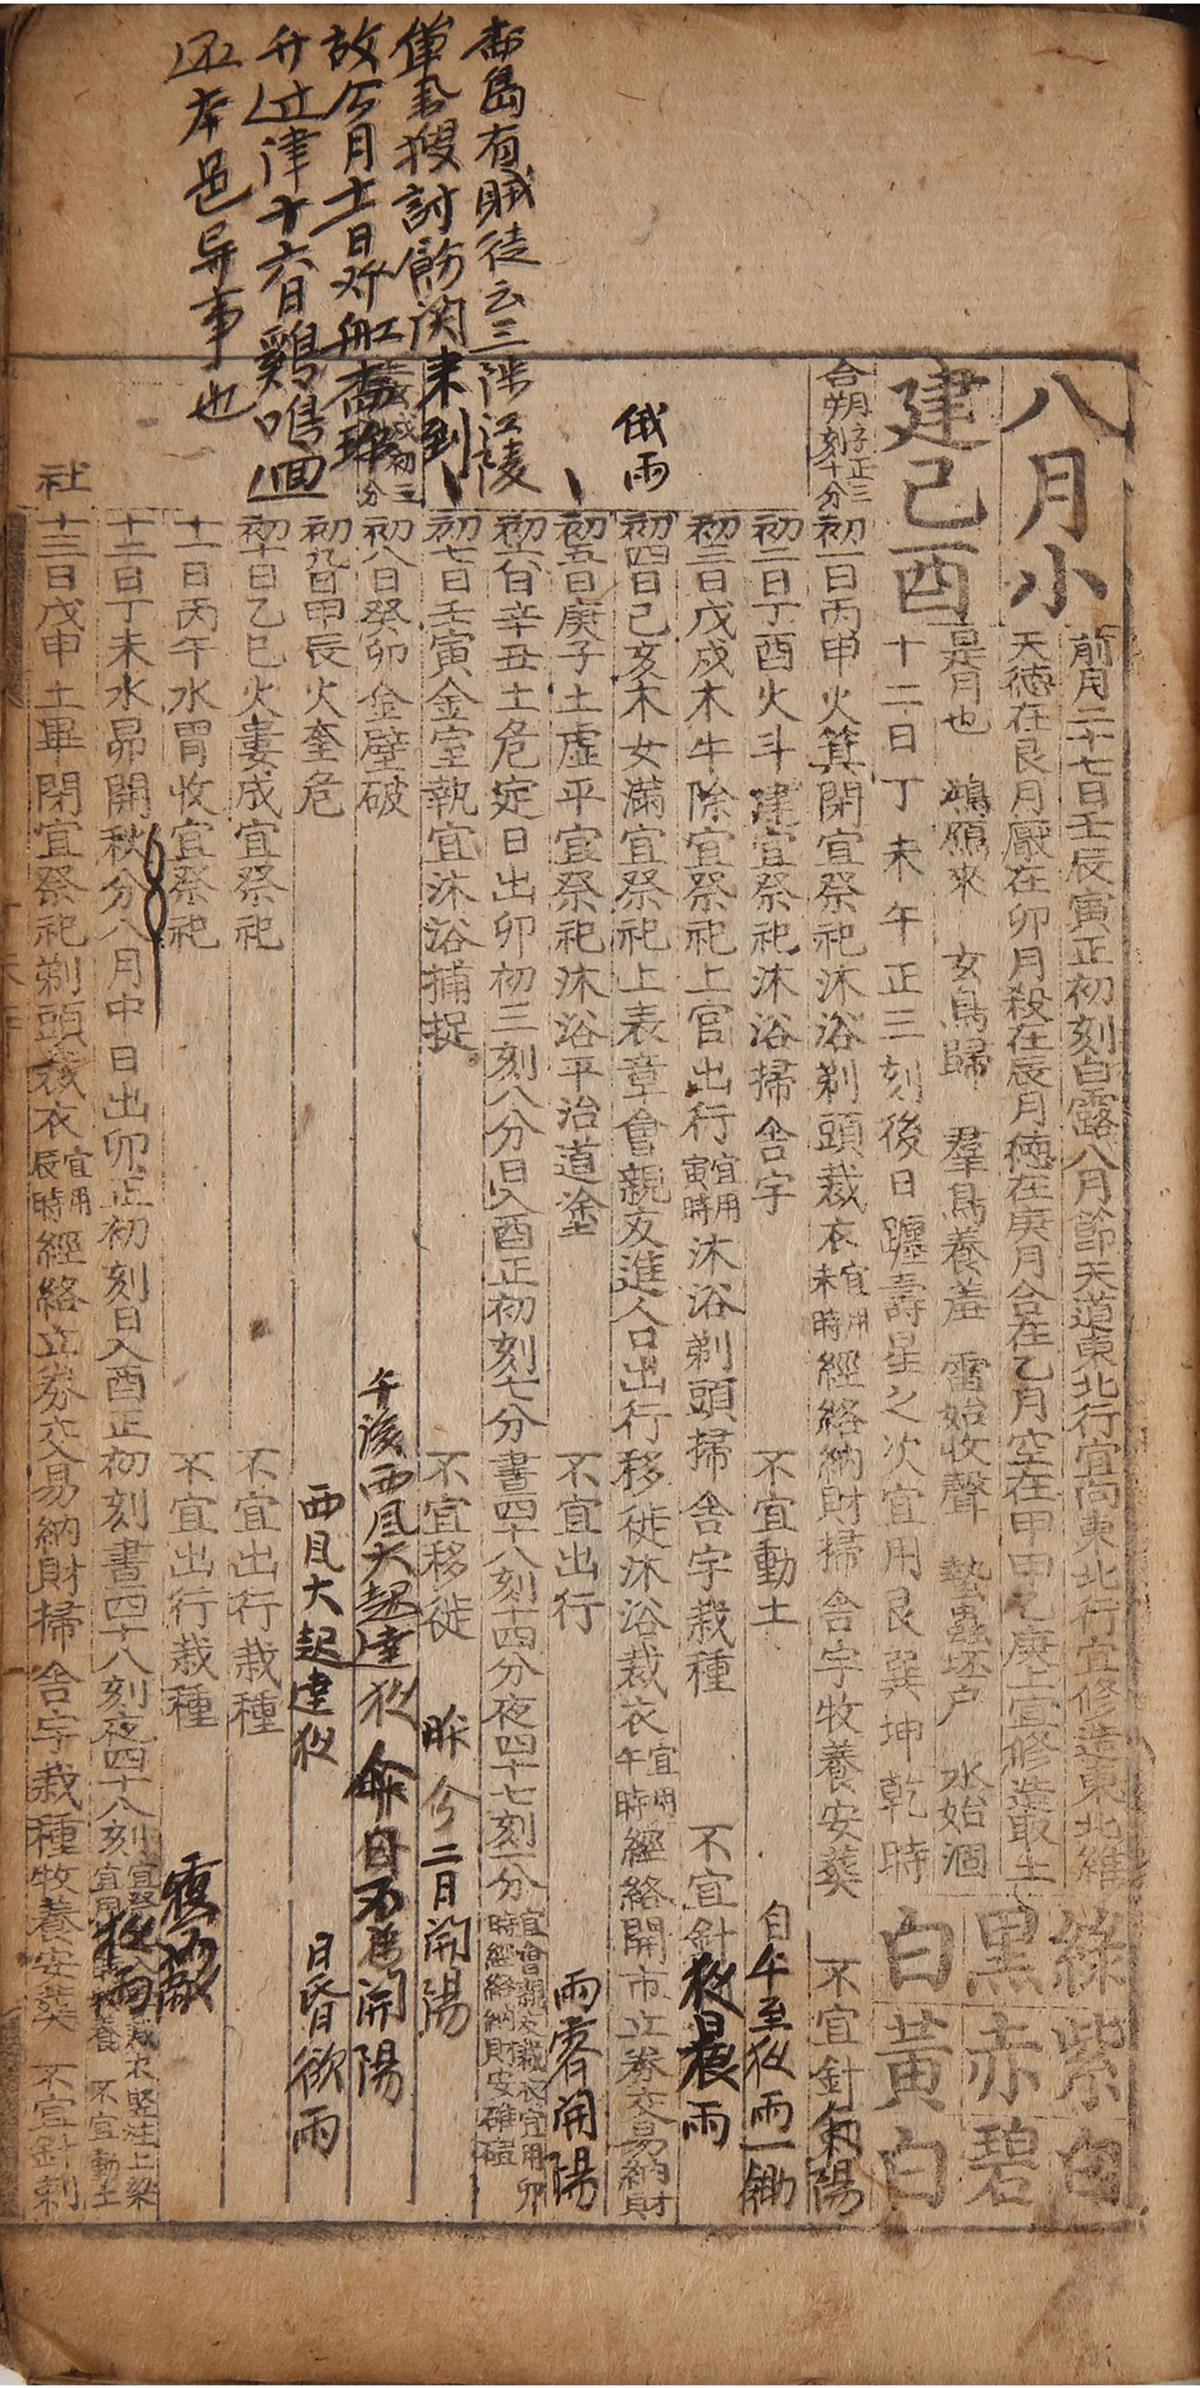 八月小
前月二十七日壬辰寅正初刻白露八月節天道東北行宜向東北行宜修造東北維
天德在艮月厭在卯月殺在辰月德在庚月合在乙月空在甲甲乙庚上宜修造取土
建己酉
是月也 鴻鴈來 玄鳥歸 羣鳥養羞 雷始收聲 蟄蟲坯户 水始涸
十二日丁未午正三刻後日躔壽星之次宜用艮巽坤乾時
綠紫白
黑赤碧
白黃白
合朔子正三刻十分
初一日丙申火箕閉宜祭祀沐浴剃頭裁衣宜用未時經絡納財掃舍宇牧養安葬 不宜針刺 陽
初二日丁酉火斗建宜祭祀沐浴掃舍宇 不宜動土 自午至夜雨一鋤
初三日戊戌木牛除宜祭祀上官出行宜用寅時沐浴剃頭掃舍宇栽種 不宜針 夜晨雨
俄雨
初四日己亥木女滿宜祭祀上表章會親友進人口出行移徙沐浴裁衣宜用午時經絡開市立券交易納財
初五日庚子土虛平宜祭祀沐浴平治道塗 不宜出行 雨霽開陽
初六日辛丑土危定日出卯初三刻八分日入酉正初刻七分晝四十八刻十四分夜四十七刻一分宜會親友裁衣宜用卯時經絡納財安碓磑
初七日壬寅金室執宜沐浴捕捉 不宜移徙 昨今二月開陽
初八日癸卯金壁破 午後西風大起達夜
初九日甲辰火奎危 西風大起達夜 日昏欲雨
初十日乙巳火婁成宜祭祀 不宜出行栽種
十一日丙午水胃收宜祭祀 不宜出行栽種
十二日丁未水昴開秋分八月中 日出卯正初刻日入酉正初刻晝四十八刻夜四十八刻 裁衣竪柱上梁 不宜動土 夜雨
社
十三日戊申土畢閉宜祭祀剃頭裁衣宜用辰時經絡立券交易納財掃舍宇栽種牧養安葬 不宜針刺
島有賊徒云三陟江陵
搜討飭関来到
故今月十一日
津十六日鷄鳴回
还本邑异事也